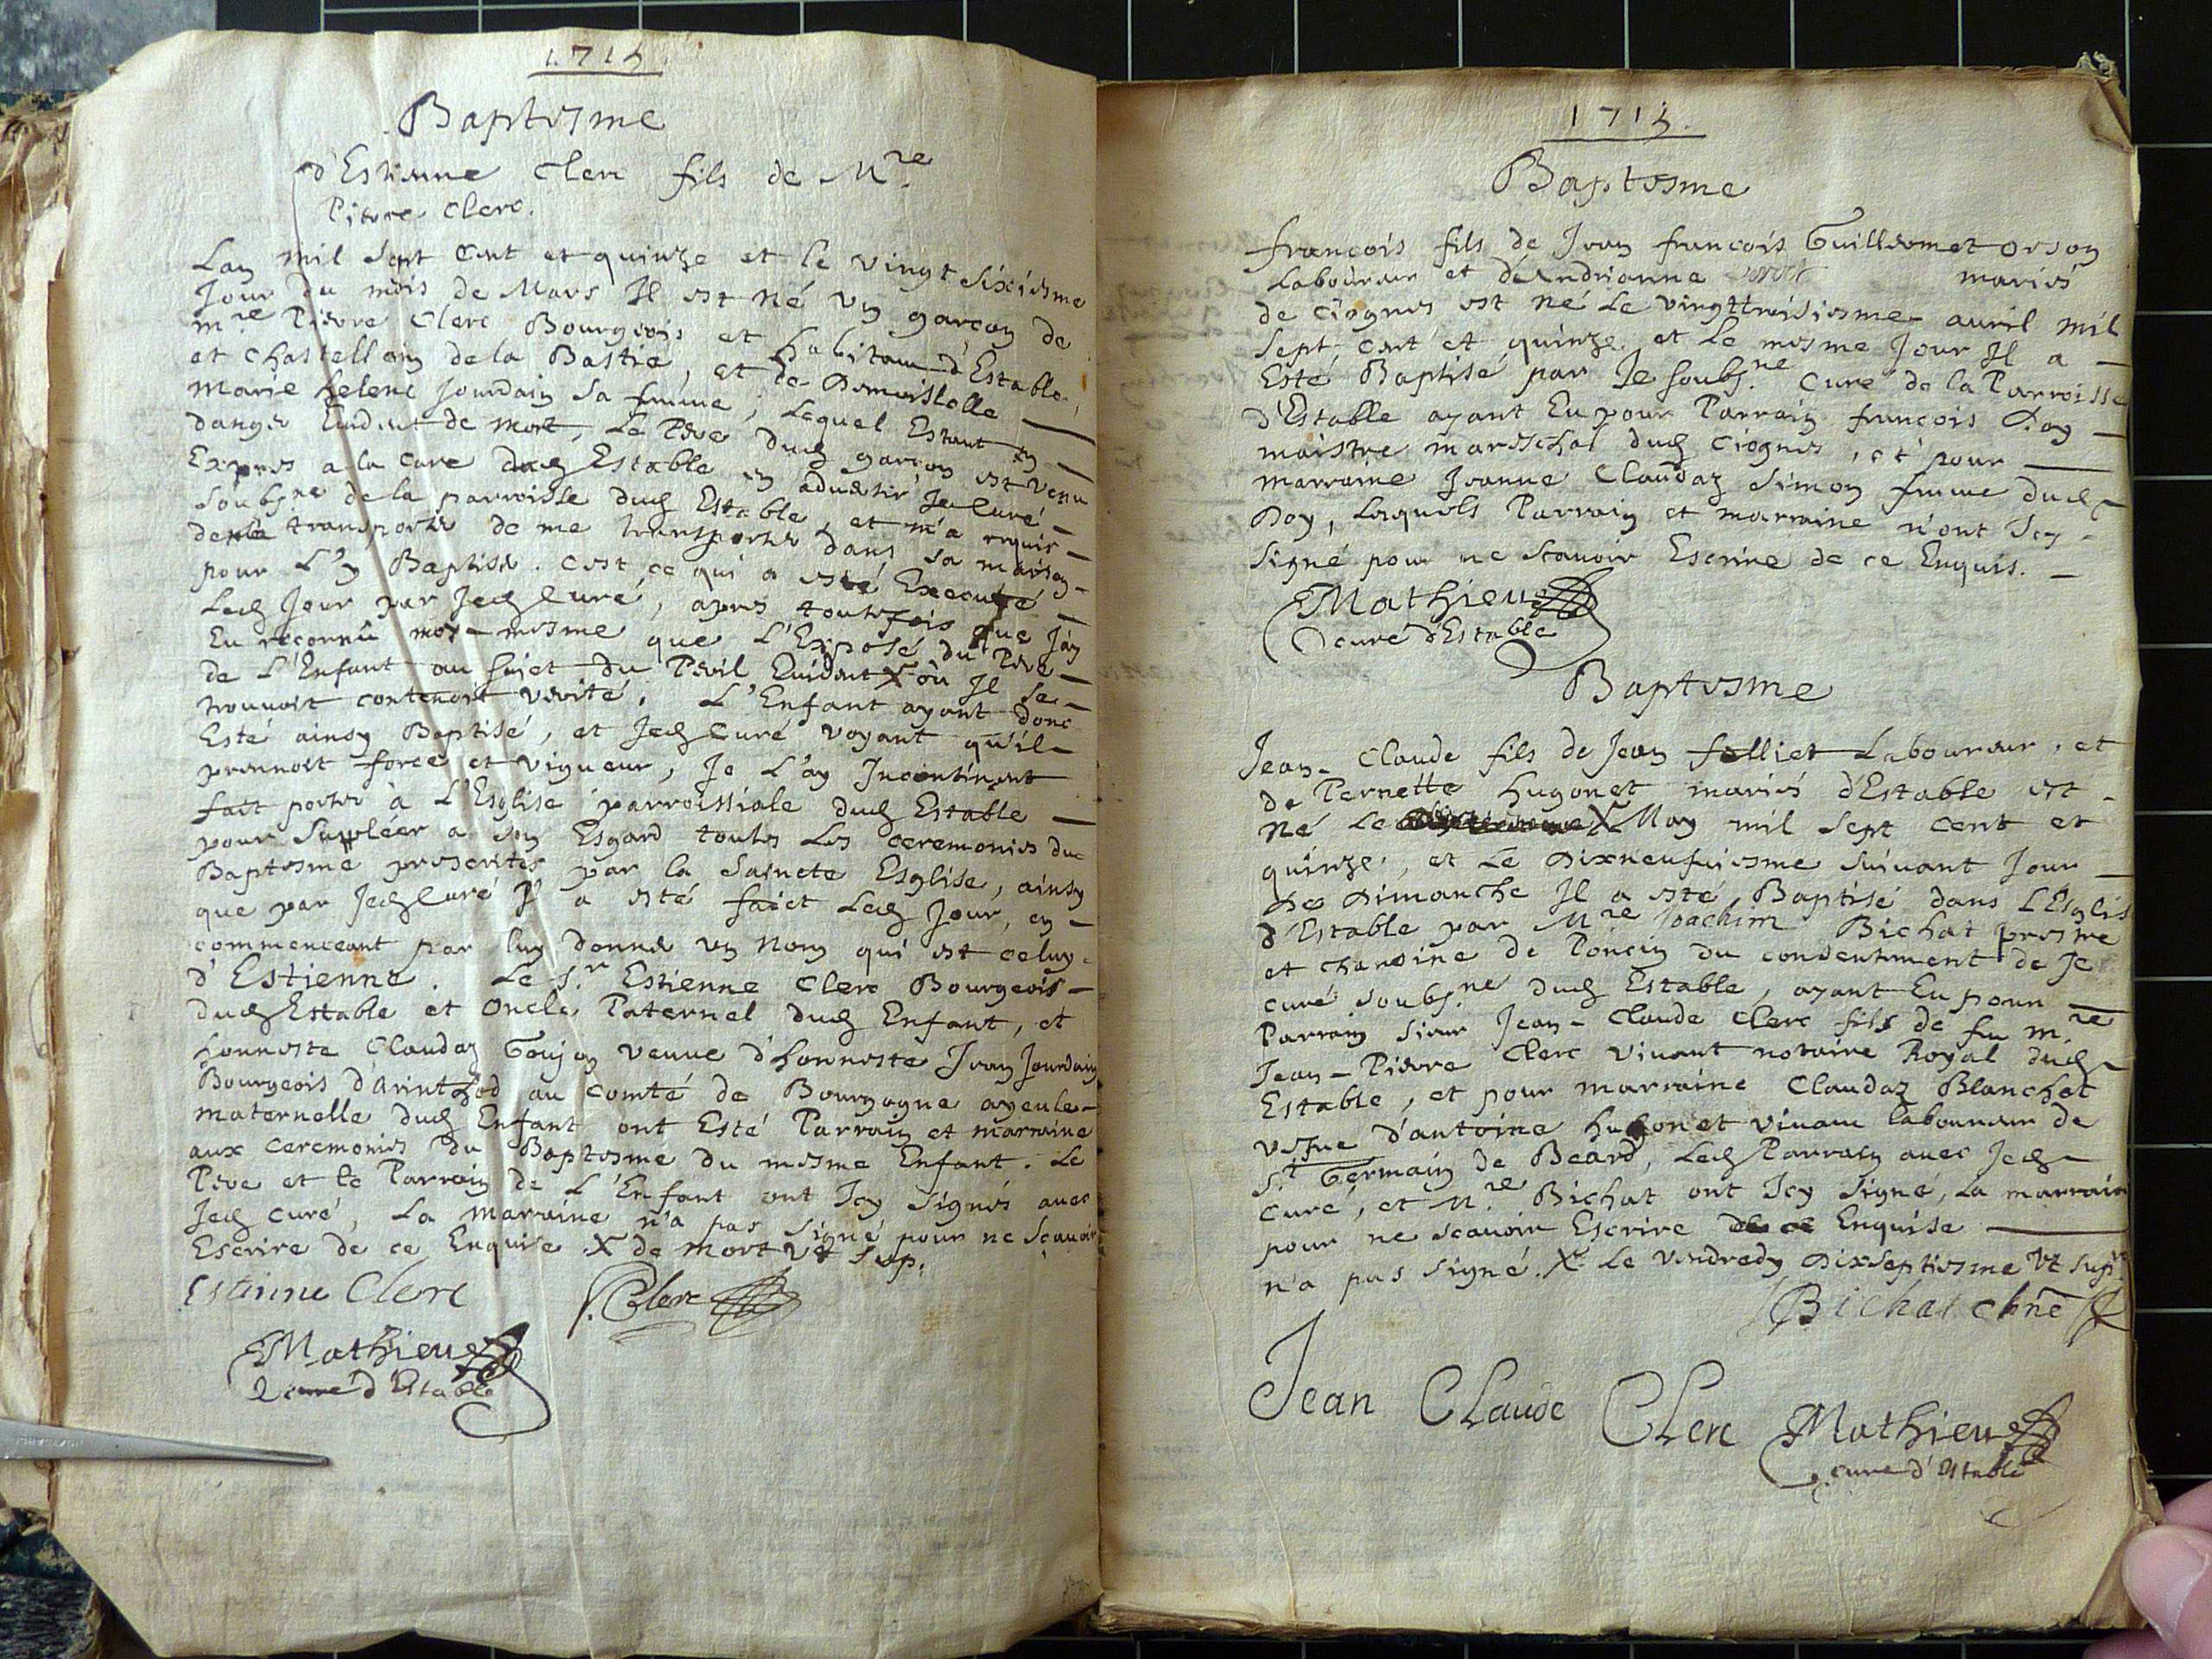 1715
Baptesme
d'Estienne Clerc fils de M.re
Pierre Clerc.
Lan mil sept cent et quinze et le vingt sixiesme
Jour du mois de Mars Il est né un garçon de
m.re Pierre Clerc Bourgeois et habitant d'Estable,
et Chastellain de la Bastie, et de Demoiselle
marie helene Jourdain sa femme, Lequel Estant en
danger Evident de mort, Le Pere dud garçon est venu
Expres a la Cure dud Estable en advertir Je Curé
soubs.né de la parroisse dud Estable, et m'a requis
de me transporter dans sa maison
pour L'y Baptiser. c'est ce qui a esté Executé
Led Jour par Jed Curé, apres toutefois que J'ay
Eu reconnû moy-mesme que L'Exposé du Pere
de L'Enfant au sujet du Peril Evident X où Il se
trouvoit contenoit verité. L'Enfant ayant donc
Esté ainsy Baptisé, et Jed Curé voyant qu'il
prennoit force et vigueur, Je L'ay Incontinent
fait porter à L'Esglise parroissiale dud Estable
pour Suppléer a son Esgard toutes Les ceremonies du
Baptesme prescrites par la Saincte Esglise, ainsy
que par Jed Curé Il a esté faict Led Jour, en
commenceant par luy donner un nom qui est celuy
d'Estienne. Le S.r Estienne Clerc Bourgeois
dud Estable et Oncle Paternel dud Enfant, et
honneste Claudaz Goujon veuve d'honneste Jean Jourdain
Bourgeois d'Arinthod au Comté de Bourgogne ayeule
maternelle dud Enfant ont Esté Parrain et marraine
aux ceremonies du Baptesme du mesme Enfant. Le
Pere et le Parrain de L'Enfant ont Icy signés avec
Jed curé, La marraine n'a pas signé pour ne Scavoir
Escrire de ce Enquise X de mort ut sup.
Estienne Clerc P. Clerc
Mathieu
curé d'Estable
1715.
Baptesme
francois fils de Jean francois Guillermet Orson
Laboureur et d'Andrianne mariés
de Ciognes est né Le vingttroisiesme avril mil
Sept cent et quinze et Le mesme Jour Il a
Esté Baptisé par Je soubs.né Curé de la Parroisse
d'Estable ayant Eu pour Parrain francois Doy
maistre mareschal dud Ciognes, et pour
marraine Jeanne Claudaz Simon femme dud
Doy, Lesquels Parrain et marraine n'ont Icy
signé pour ne scavoir Escrire de ce Enquis.
Mathieu
curé d'Estable
Baptesme
Jean-Claude fils de Jean folliet Laboureur, et
de Pernette hugonet mariés d'Estable est
né Le X May mil sept cent et
quinze, et Le Dixneufviesme suivant Jour
De Dimanche Il a esté Baptisé dans L'Esglis
d'Estable par M.re Joachim Bichat prestre
et chanoine de Poncin du consentiment de Je
curé soubs.né dud Estable, ayant Eu pour
Parrain sieur Jean-Claude Clerc fils de feu m.re
Jean-Pierre Clerc vivant notaire Royal dud
Estable, et pour marraine Claudaz Blanchet
vefue d'antoine hugonet vivant laboureur de
S.t Germain de Beard, Led Parrain avec Jed
Curé, et M.re Bichat ont Icy signé, La marrain
pour ne scavoir Escrire de ce Enquise
n'a pas signé. X Le vendredy Dixseptiesme ut sup.
Bichat chne
Jean CLaude CLerc Mathieu
curé d'Estable